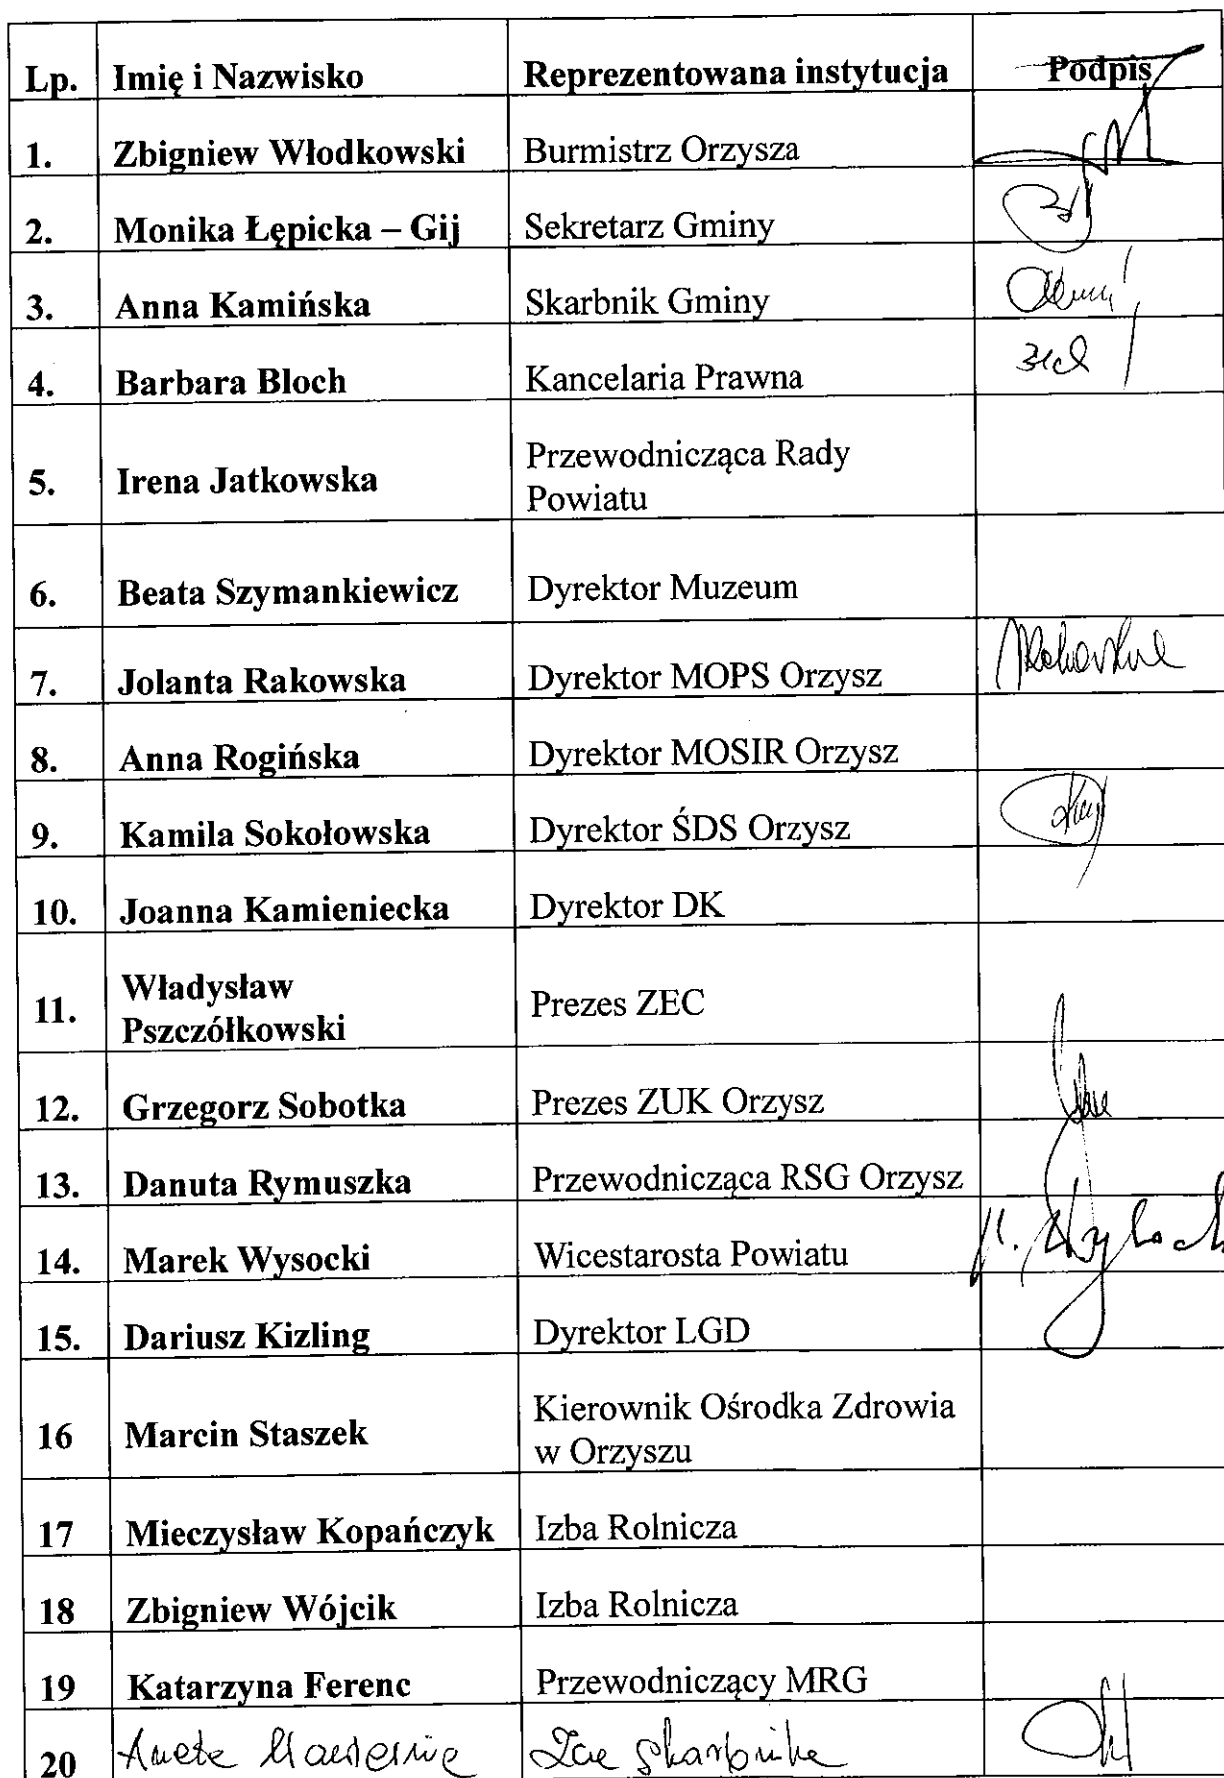 Lp. Imię i Nazwisko Reprezentowana instytucja Podpis
1. Zbigniew Włodkowski Burmistrz Orzysza
2. Monika Łępicka – Gij Sekretarz Gminy
3. Anna Kamińska Skarbnik Gminy
4. Barbara Bloch Kancelaria Prawna
5. Irena Jatkowska Przewodnicząca Rady
Powiatu
6. Beata Szymankiewicz Dyrektor Muzeum
7. Jolanta Rakowska Dyrektor MOPS Orzysz
8. Anna Rogińska Dyrektor MOSIR Orzysz
9. Kamila Sokołowska Dyrektor ŚDS Orzysz
10. Joanna Kamieniecka Dyrektor DK
11. Władysław
Pszczółkowski Prezes ZEC
12. Grzegorz Sobotka Prezes ZUK Orzysz
13. Danuta Rymuszka Przewodnicząca RSG Orzysz
14. Marek Wysocki Wicestarosta Powiatu
15. Dariusz Kizling Dyrektor LGD
16 Marcin Staszek Kierownik Ośrodka Zdrowia
w Orzyszu
17 Mieczysław Kopańczyk Izba Rolnicza
18 Zbigniew Wójcik Izba Rolnicza
19 Katarzyna Ferenc Przewodniczący MRG
20 Aneta skarbnika